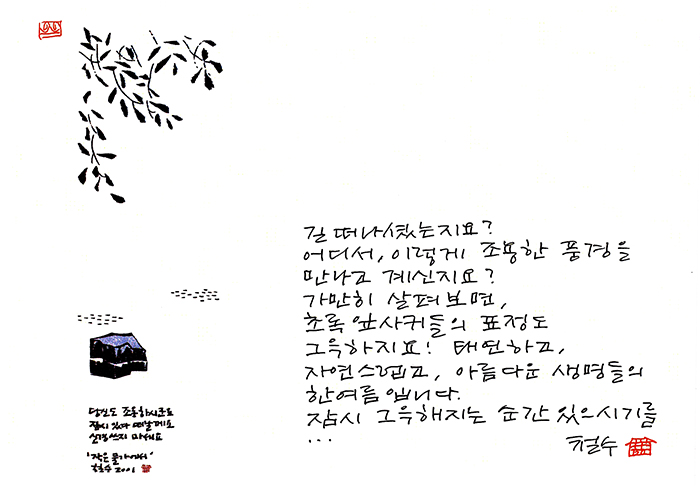 당신도 조용하시군요
잠시 있다 떠날게요
신경쓰지 마세요
'작은 물가에서'
철수 2001
길 떠나셨는지요?
어디서, 이렇게 조용한 풍경을
만나고 계신지요?
가만히 살펴보면,
초록 잎사귀들의 표정도
그윽하지요! 태연하고,
자연스럽고, 아름다운 생명들의
한여름입니다.
잠시 그윽해지는 순간 있으시기를
...
철수